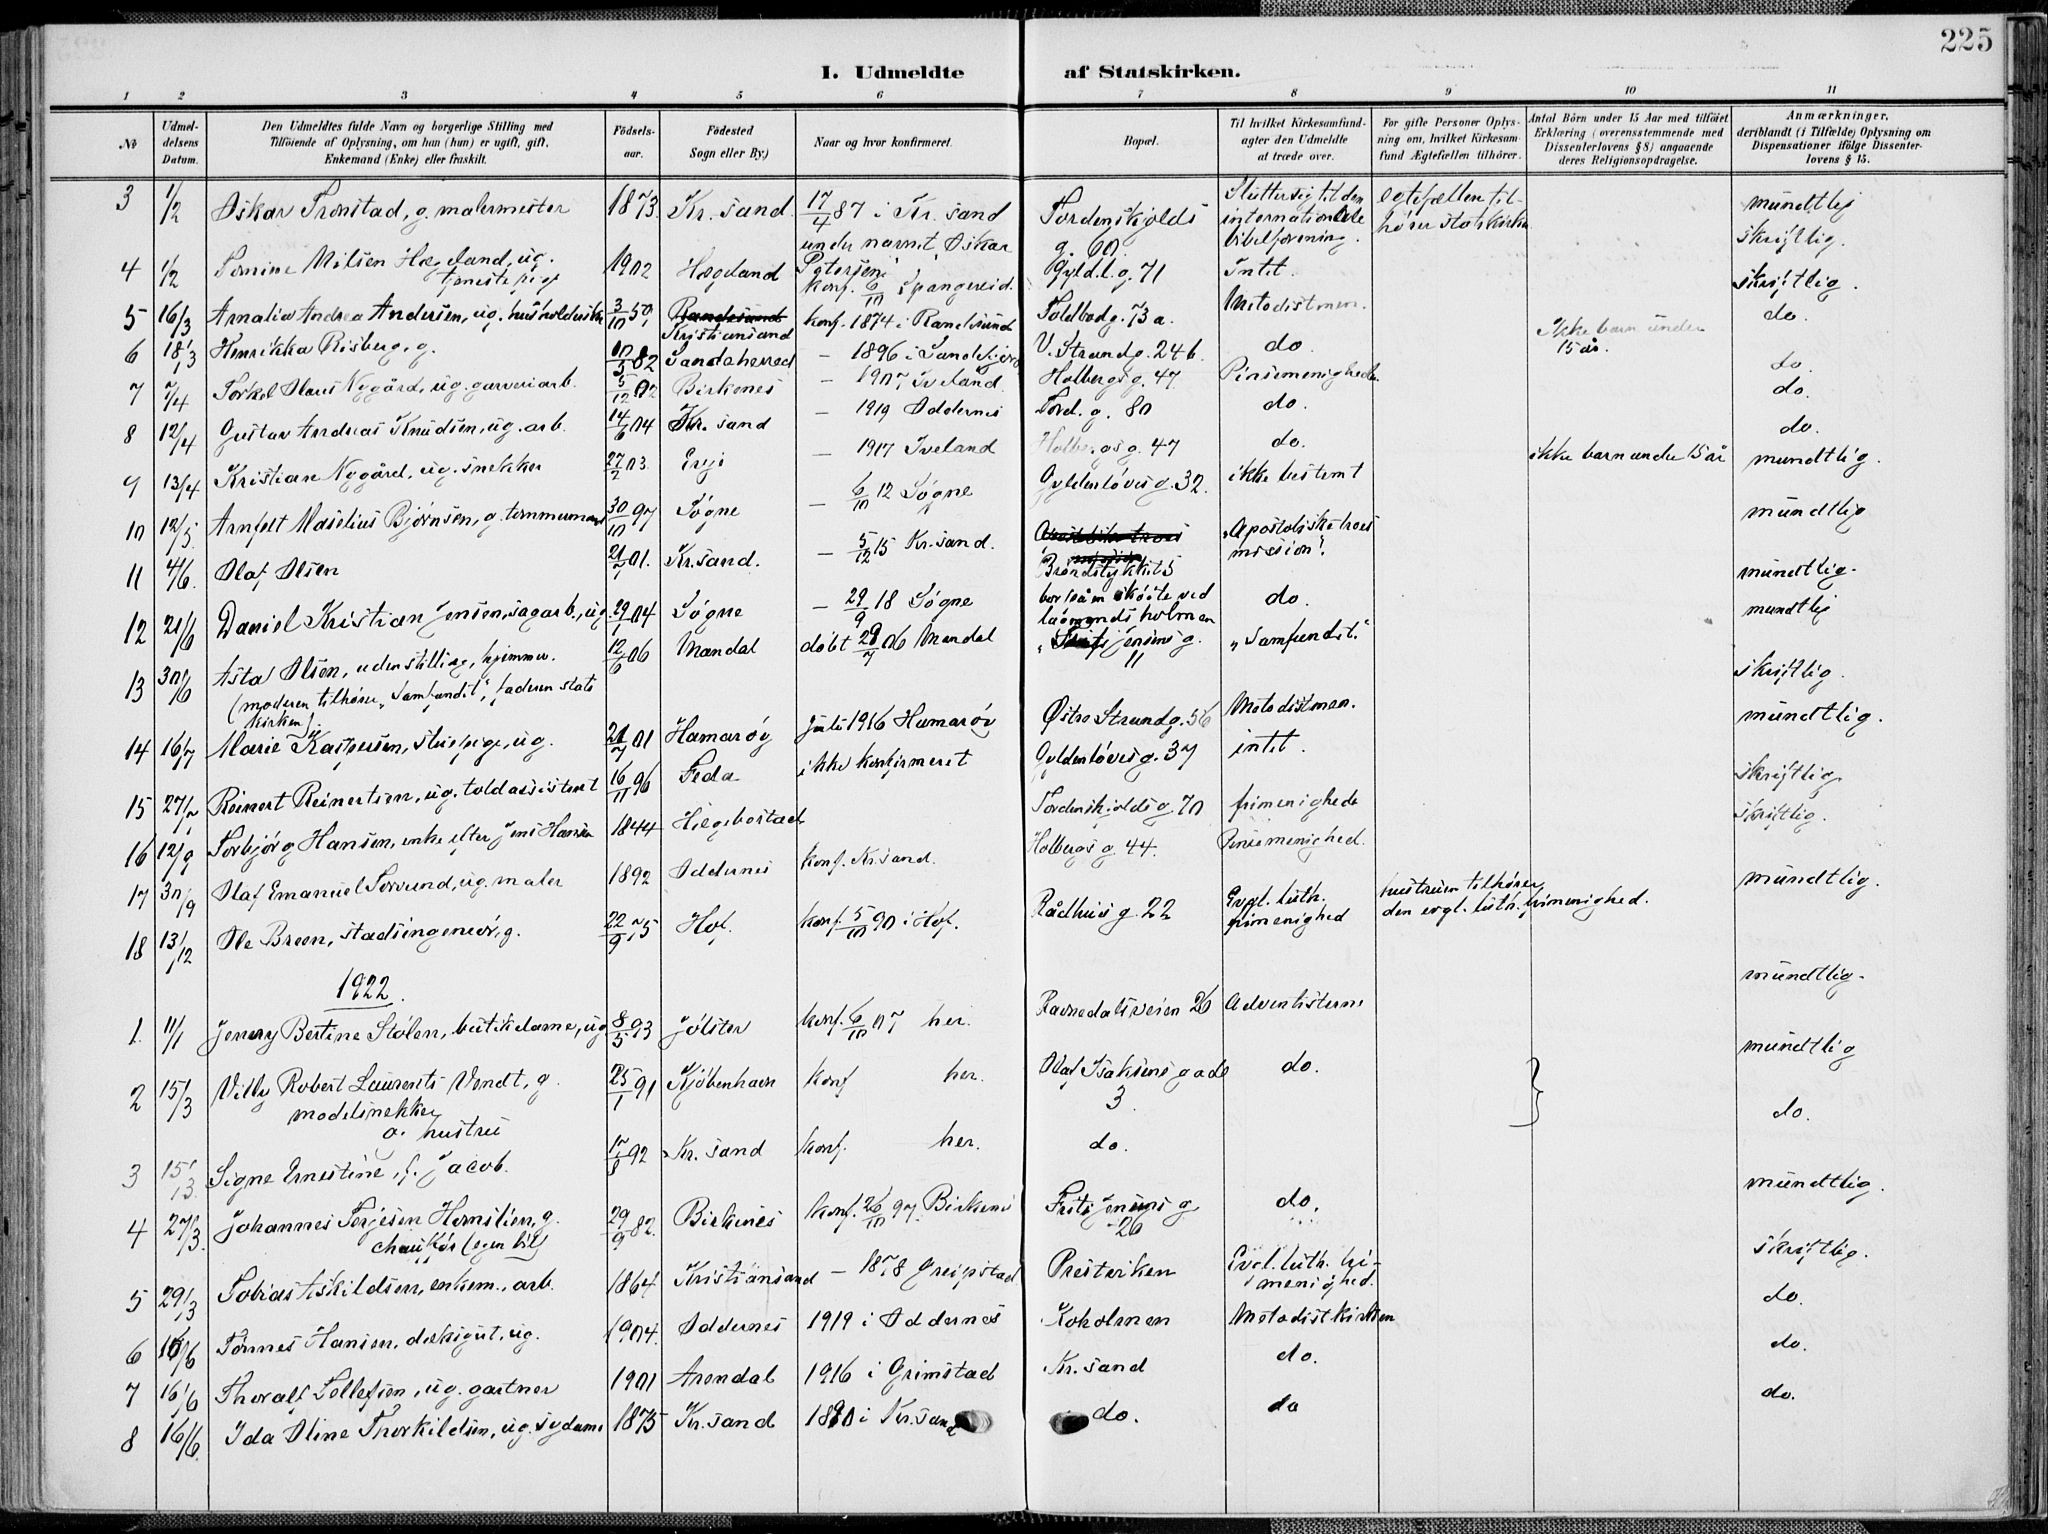 225
I. Udmeldte af Statskirken.
1 2 3 4 5 6 7 8 9 10 11
No
Udmeldelsens Datum.
Den Udmeldtes fulde Navn og borgerlige Stilling med
Tilføiende af Oplysning, om han (hun) er ugift, gift,
Enkemand (Enke) eller fraskilt.
Födselsaar.
Födested
Sogn eller By.)
Naar og hvor konfirmeret.
Bopæl.
Til hvilket Kirkesamfund-
agter den Udmeldte
at træde over.
For gifte Personer Oplys-
ning om, hvilket Kirkesam-
fund Ægtefællen tilhører.
Antal Börn under 15 Aar med tilføiet
Erklæring (overensstemmende med
Dissenterlovens § 8) angaaende
deres Religionsopdragelse.
Anmærkninger,
deriblandt (i Tilfælde) Oplysning om
Dispensationer ifölge Dissenter-
lovens § 15.
3 1/2 Oskar Tronstad, g. malermester 1873 Kr.sand 17/4 87 i Kr.sand under navnet Oskar Petersen Tordenskjolds g. 60 Slutter sig til den internationale bibelforening. egtefællen tilhører statskirken mundtlig
4 1/2 Tomine Nilsen Hægeland, ug. tjenestepige 1902 Hægeland konf. 6/10 i Spangereid. Gyld.l.g. 71 Intet. skriftlig.
5 16/3 Amalia Andrea Andersen, ug. husholderske 3/10 59 Randesund Kristiansand konf. 1874 i Randesund Toldbodg. 73 a. Metodistmen. skriftlig.
6 18/3 Henrikka Risberg, g. 10/5 82 Sandeherred – 1896 i Sandefjord V. Strandg. 24 b. do. Ikke barn under 15 år. do.
7 7/4 Torkel Olaus Nygård, ug. garveriarb. 5/12 02 Birkenes – 1917 Iveland Holbergs g. 47 Pinsemenigheden do.
8 12/4 Gustav Andreas Knudsen, ug. arb. 14/6 04 Kr.sand – 1919 Oddernes Tord. g. 80 do. do.
9 13/4 Kristian Nygård, ug. snekker 27/2 03. Evje – 1917 Iveland Holbergsg. 47 do. do.
10 12/5 Arnfelt Maselius Bjørnsen, g. tømmermand 30/10 97 Søgne – 6/10 12 Søgne Gyldenløvesg. 32. ikke bestemt ikke barn under 15 år mundtlig.
11 4/6. Olaf Olsen 21/7 01. Kr.sand. – 5/12 15 Kr.sand. Brøndstykkets "Apostoliske troesmission". mundtlig
12 21/6 Daniel Kristian Jensen, sagarb., ug 29/1 04 Søgne – 29/9 18 Søgne do. mundtlig.
13 30/6 Asta Olsen, uden stilling, hjemmev. (moderen tilhører "Samfundet", faderen statskirken). 12/6 06 Mandal døbt 29/7 06 Mandal Jensens g. 11 "Samfundet." mundtlig
14 16/7 Marie Kaspersen, stuepige, ug. 21/7 01 Hamarøy Juli 1916 Hamarøy Østre Strandg. 56 Metodistmen. skriftlig.
15 27/7 Reinert Reinertsen, ug. toldassistent 16/11 96 Feda ikke konfirmeret Gyldenløvesg. 37 intet. mundtlig.
16 12/9 Torbjørg Hansen, enke efter Jens Hansen 1844 Hægebostad Tordenskjoldsg. 70 frimenighede skriftlig
17 30/9 Olaf Emanuel Torsund, ug. maler 1892 Oddernes konf. Kr.sand. Holbergs g. 44. Pinsemenighed. skriftlig.
18 13/12 Ole Breen, stadsingeniør, g. 22/9 75 Hof. konf. 5/10 90 i Hof. Rådhusg. 22 Evgl. luth. frimenighed hustruen tilhører den evgl. luth. frimenighed. mundtlig.
1922
1. 11/1 Jenny Bertine Stølen, butikdame, ug. 8/5 93 Jølster konf. 6/10 07 her. Ravnedalsveien 26 Adventisterne mundtlig.
2 15/3 Villy Robert Laurents Vendt, g. modelsnekker o. hustru 25/1 91 Kjøbenhavn konf her. Olaf Isaksens gade 3. do. mundtlig
3 15/3. Signe Ernestine, f. Jacob. 17/8 92 Kr.sand konf. her. do. do.
4 27/3. Johannes Terjesen Hamslien, g. chauffør (egen bil) 29/9 82. Birkenes konf. 26/10 97. Birkenes Frits Jensens g 26 do. mundtlig.
5 29/3 Tobias Askildsen, enkem., arb. 1864 Kristiansand – 1878 Greipstad Prestviken Evgl. luth. frimenighed. skriftlig.
6 16/6 Tønnes Hansen, deksgut, ug. 1904. Oddernes 1919 i Oddernes Koholmen Metodistkirken do.
7 16/6 Thoralf Tollefsen, ug. gartner 1901 Arendal 1916 i Grimstad Kr.sand do. do.
8 16/6. Ida Oline Thorkildsen, ug. sydame 1875 Kr.sand 1890 i Kr.sand do. do do.